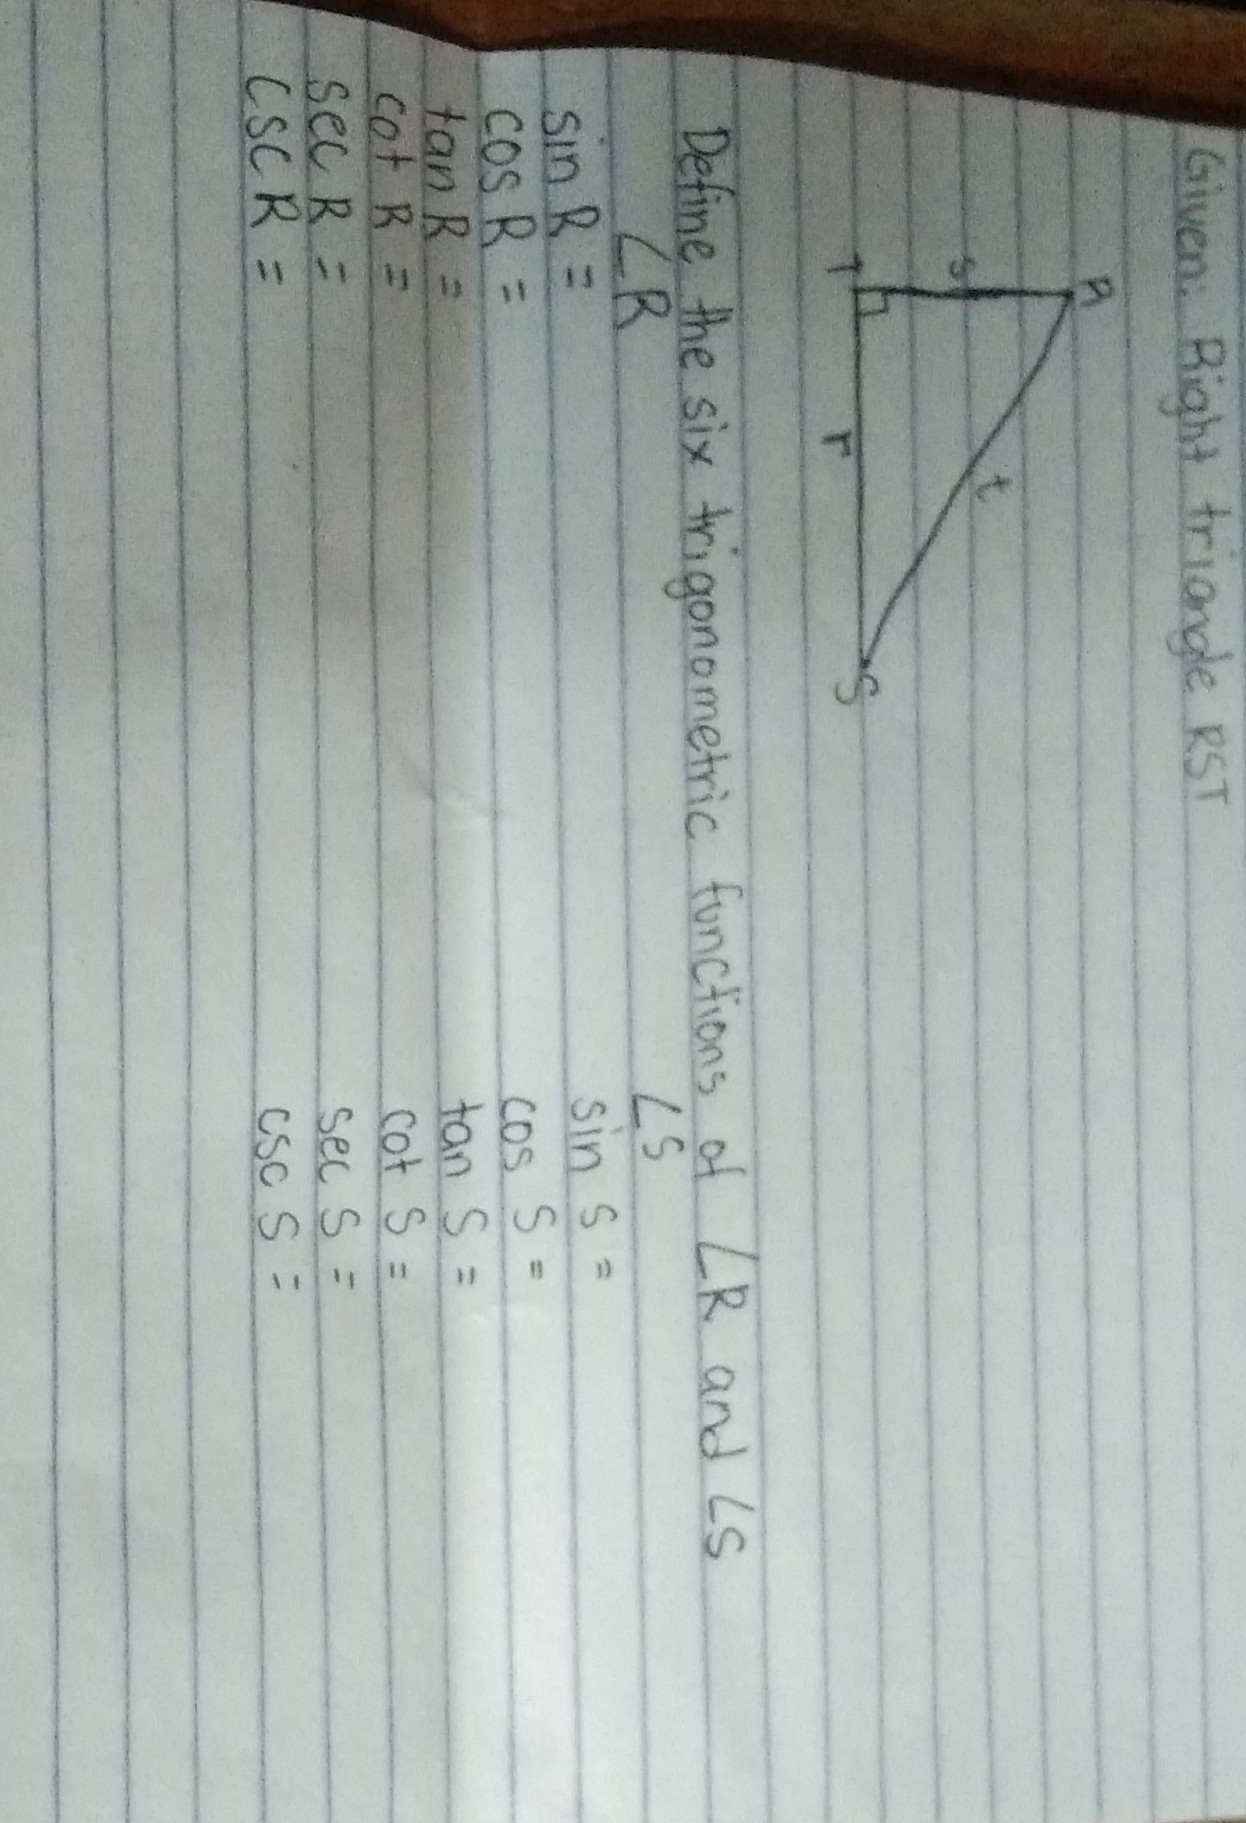 Given: Right triangle RST
R
s
t
T
r
S
Define the six trigonometric functions of ∠R and ∠S
∠R ∠S
sin R = sin S =
cos R = cos S =
tan R = tan S =
cot R = cot S =
sec R = sec S =
csc R = csc S =